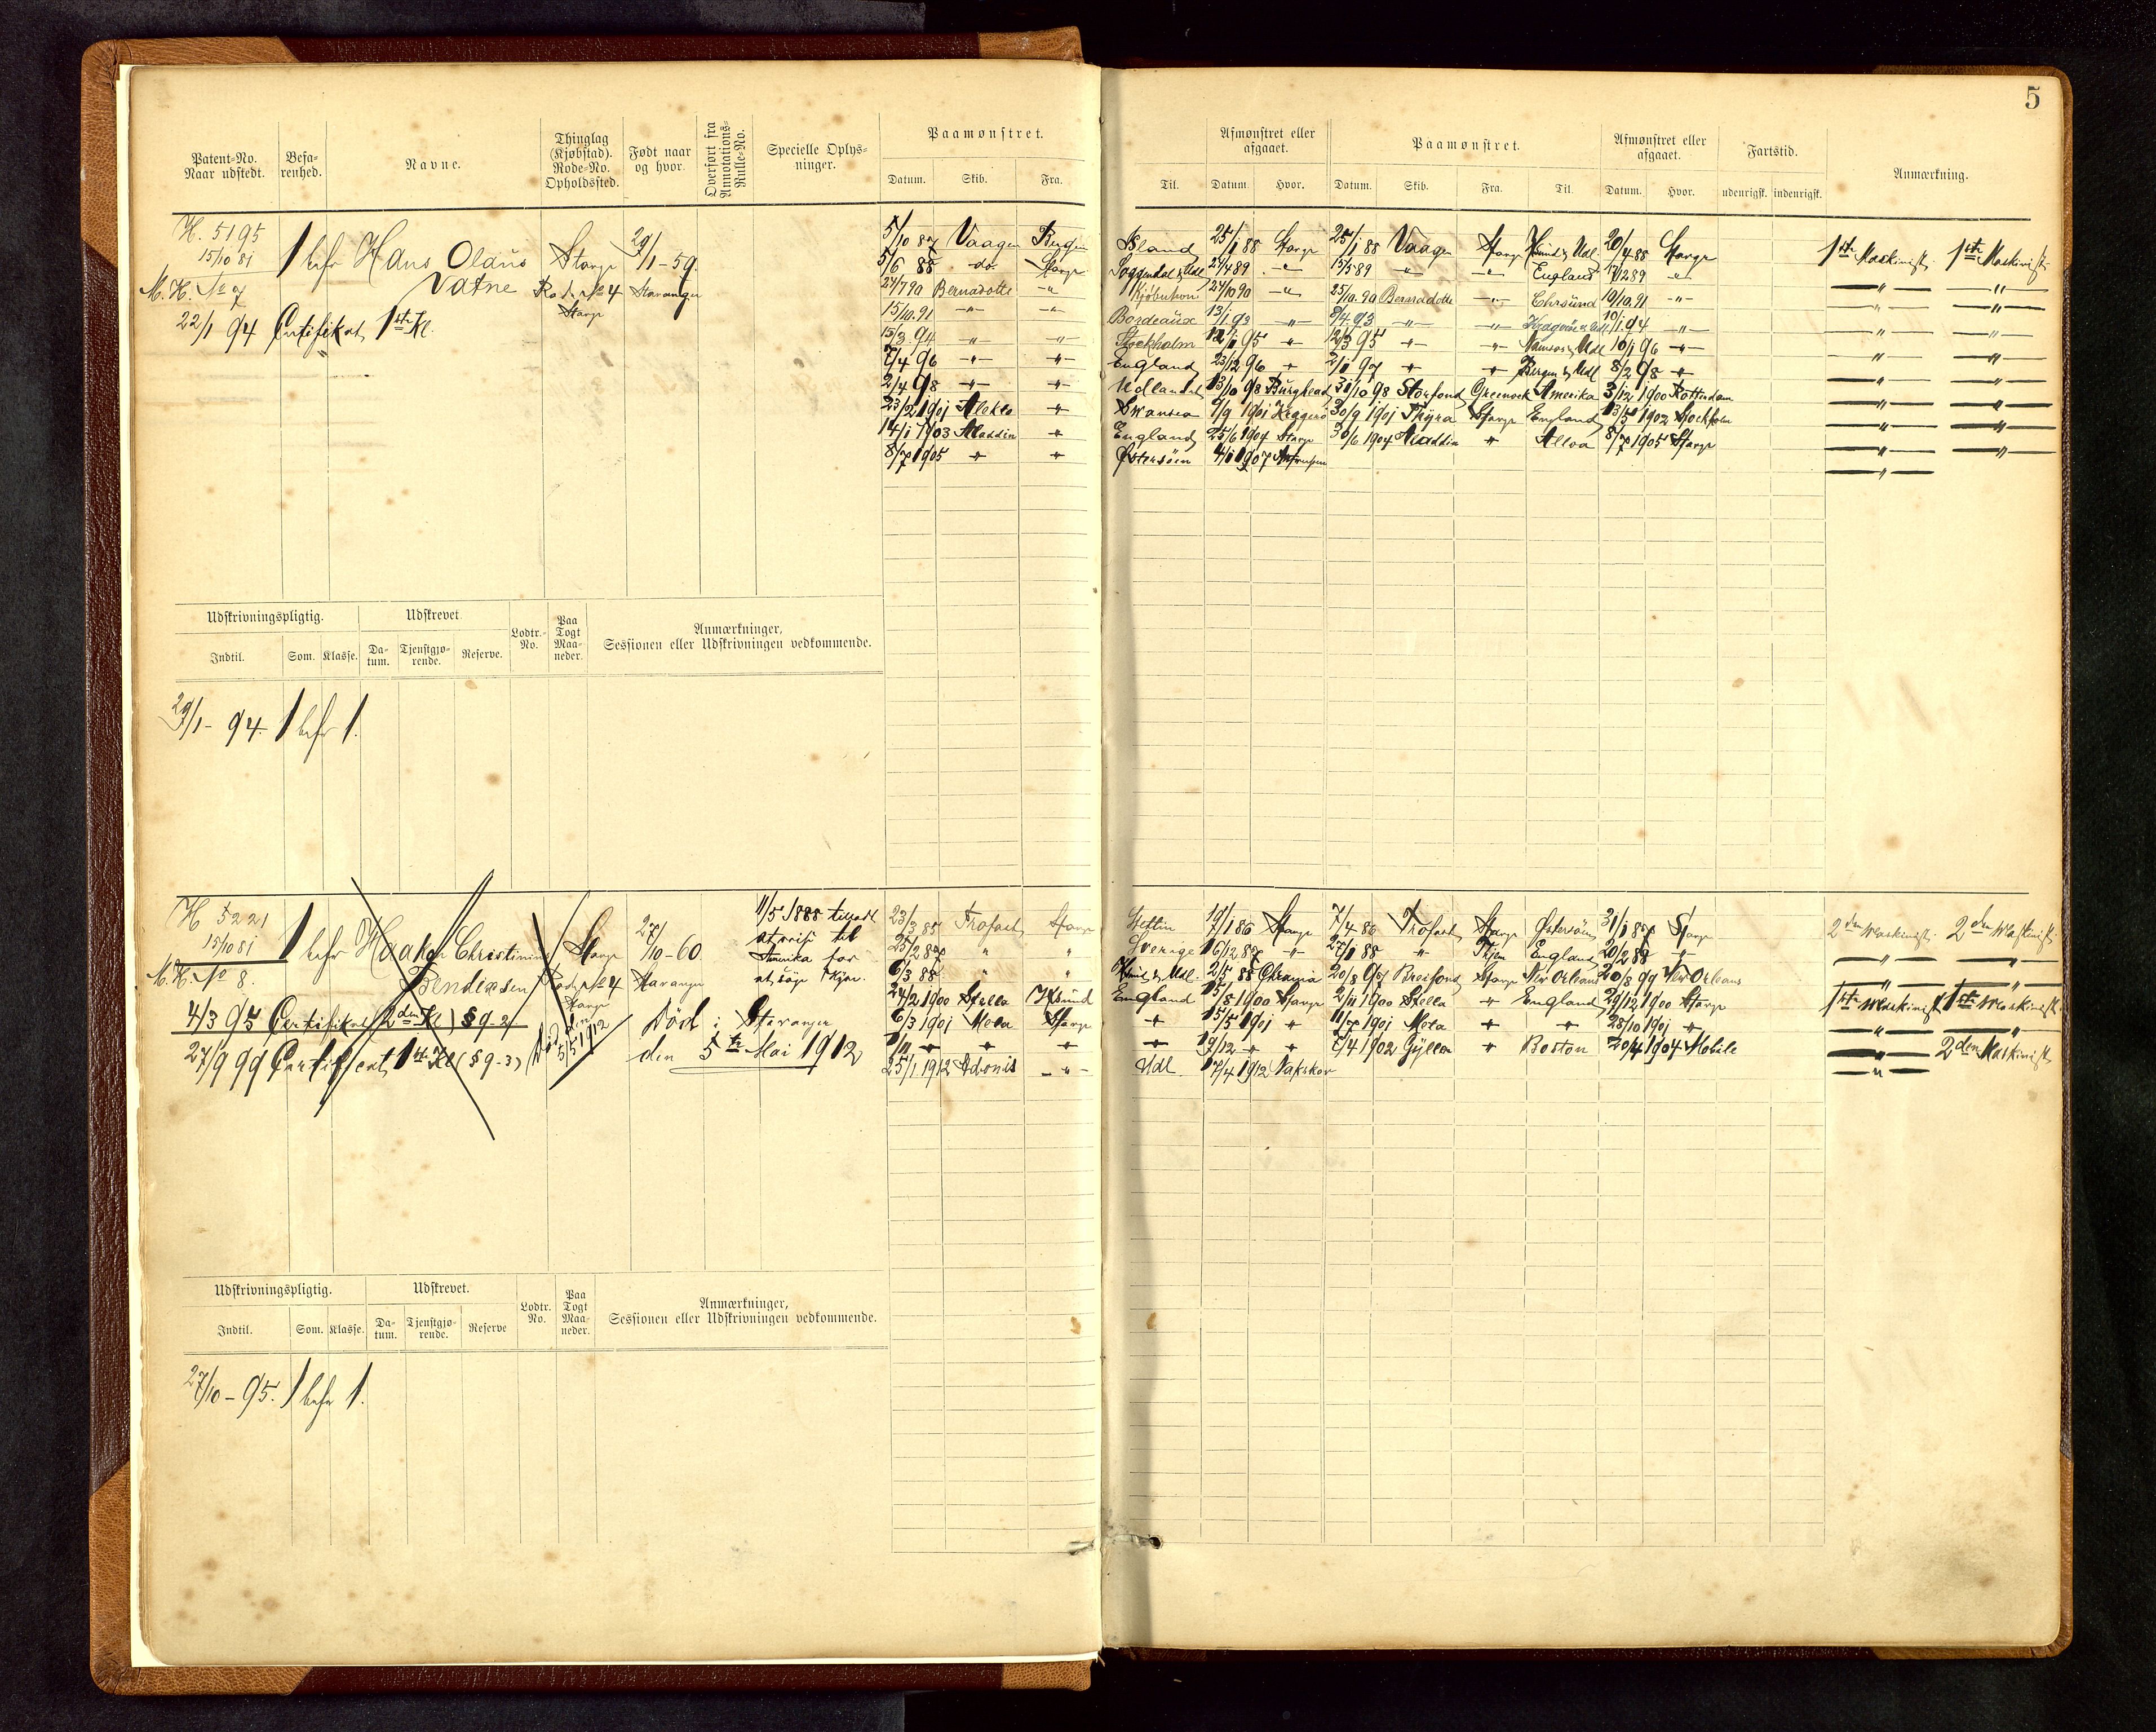 5
Patent-No. Naar udstedt.
Befarenhed.
Navne.
Thinglag (Kjøbstad). Rode-No. Opholdssted.
Født naar og hvor.
Overført fra Annotations-Rulle-No.
Specielle Oplysninger.
Paamønstret.
Datum. Skib. Fra. Til.
Afmønstret eller afgaaet.
Datum. Hvor.
Paamønstret.
Datum. Skib. Fra. Til.
Afmønstret eller afgaaet.
Datum. Hvor.
Fartstid.
udenrigsk. indenrigsk.
Anmærkning.
H. 5195
15/10 81
M. H. No 7
22/1 94 Certifikat 1ste Kl.
1 befr Hans Olaus Vatne
Stavgr
Rode No 4
Stavgr
29/1-59.
Stavanger
5/10 87 Vaagen Bergen Island 25/1 88 Stavgr 25/1 88 Vaagen Stavgr Udl. 20/4 88 Stavgr 1ste Maskinist 1ste Maskinist
5/6 88 do. Stavgr Soggendal & Udl 27/4 89 -"- 15/5 89 -"- -"- England -"- -"- -"-
24/7 90 Bernadotte -"- Kjøbenhvn 24/10 90 -"- 25/10. 90 Bernadotte -"- Chrsund 10/10. 91 -"- -"- -"-
15/10. 91 -"- -"- Bordeaux 13/1. 93 -"- 8/4. 93 -"- -"- Udl. 10/1. 94 -"- -"- -"-
15/3. 94 -"- -"- Stockholm 12/1 95 -"- 12/3 95 -"- -"- Namsos & Udl 10/1 96 -"- -"- -"-
7/4 96 -"- -"- England 23/12 96 -"- 2/1 97 -"- -"- Bergen & Udl 8/2 98 -"- -"- -"-
2/4 98 -"- -"- Udlandet 13/10 98 Burghead 31/10 98 Storfond Greenock Amerika 3/12 1900 Rotterdam -"- -"-
23/2 1901 Alekto -"- Swansea 9/9 1901 Kragerø 30/9 1901 Thyra Stavgr England 13/5 1902 Stockholm -"- -"-
14/1 1903 Aladdin -"- England 25/6 1904 Stavgr 30/6 1904 Aladdin -"- Alloa 8/7 1905 Stavgr -"- -"-
8/7 1905 -"- -"- Østersøen 4/1 1907 -"-
Udskrivningspligtig.
Indtil. Som. Klasse.
Udskrevet.
Datum. Tjenstgjørende. Reserve.
Lodtr.-No.
Paa Togt Maaneder.
Anmærkninger, Sessionen eller Udskrivningen vedkommende.
29/1- 94. 1 befr 1.
H 5221
15/10 81
M. H. No 8.
4/3 95 Certifikat 2den Kl. § 9-2
27/9 99 Certificat 1ste Kl (§ 9-3)
1 befr Haakon Christinius Bendixsen
Stavgr
Rode No 4
Stavgr
Død den 5/5 1912
27/10-60.
Stavanger
Död i Stavanger
den 5te Mai 1912
11/5 1888 tilladt
at reise til
Amerika for
at søge Hyre.
23/3 85 Trofast Stavgr Stettin 19/1 86 Stavgr 7/4 86 Trofast Stavgr Østersøen 31/1 87 Stavgr 2den Maskinist 2den Maskinist
23/2 87 " " Sverige 16/12 87 -"- 27/1 88 -"- Skien England 20/2 88 -"- -"- -"-
6/3 88 " " Udl. 2/5 88 Chrania 20/8 97 Breifond Stavgr New Orleans 20/8 99 New Orleans -"- -"-
24/2 1900 Stella England 15/8 1900 Stavgr 2/11 1900 Stella -"- England 29/12 1900 Stavgr 1ste Maskinist 1ste Maskinist
6/3 1901 Mela Stavgr -"- 15/5 1901 -"- 11/7 1901 Mela -"- -"- 28/10 1901 -"- -"- -"-
1/11 -"- -"- -"- -"- 19/12 -"- -"- 5/4 1902 Gyller -"- Boston 20/4 1904 Mobile -"- 2den Maskinist
25/1 1912 Adonis -"- Udl. 17/4 1912 Nakskov -"-
Udskrivningspligtig.
Indtil. Som. Klasse.
Udskrevet.
Datum. Tjenstgjørende. Reserve
Lodtr. No.
Paa Togt Maaneder.
Anmærkninger, Sessionen eller Udskrivningen vedkommende.
27/10-95. 1 befr 1.